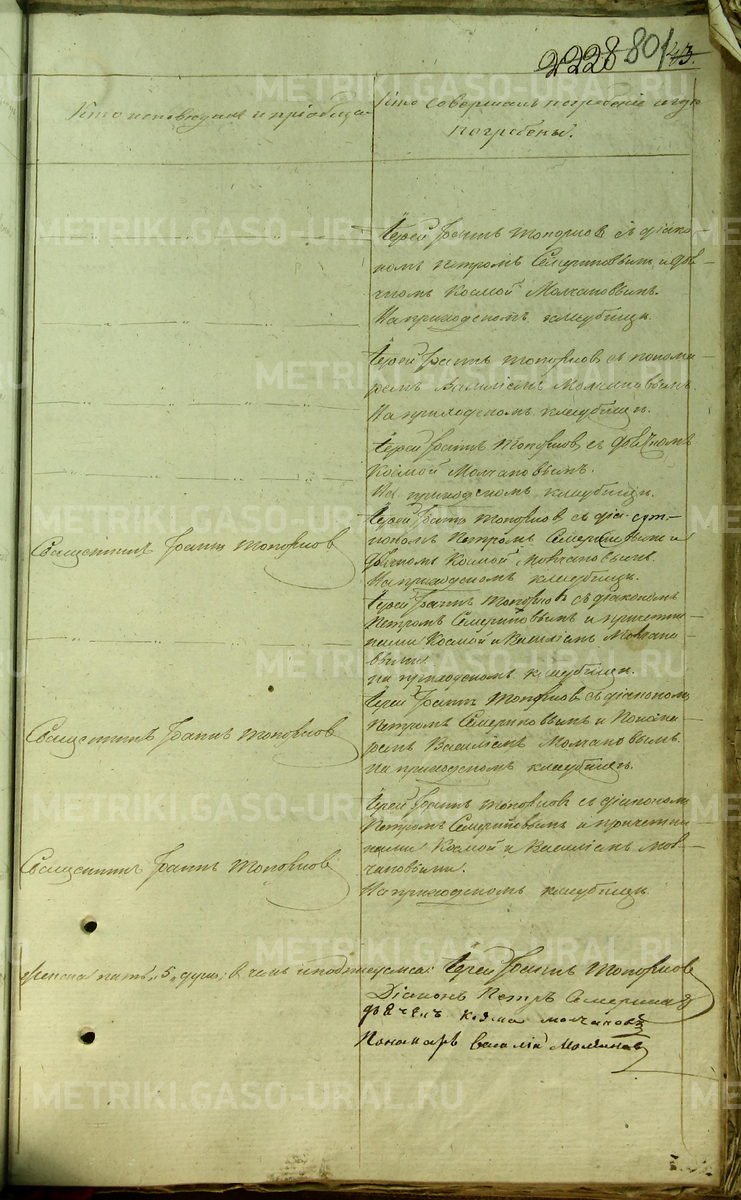 2228 801 43.
Кто исповедывал и пріобща-
Кто совершалъ погребеніе и гдѣ
погребены.
Іерей Іоаннъ Топорковъ съ діако-
номъ Петромъ Семериковымъ и дья-
чкомъ Космой Молчановымъ.
На приходскомъ кладбищѣ.
Іерей Іоаннъ Топорковъ съ понома-
ремъ Василіемъ Молчановымъ
На приходскомъ кладбищѣ.
Іерей Іоаннъ Топорковъ съ дьячкомъ
Космой Молчановымъ.
На приходскомъ кладбищѣ.
Священникъ Іоаннъ Топорковъ
Іерей Іоаннъ Топорковъ съ діа-
кономъ Петромъ Семериковымъ и
дьячкомъ Космой Молчановымъ.
На приходскомъ кладбищѣ.
Іерей Іоаннъ Топорковъ съ діакономъ
Петромъ Семериковымъ и причетни-
ками Космой и Василіемъ Молчано-
выми
На приходскомъ кладбищѣ.
Священникъ Іоаннъ Топорковъ
Іерей Іоаннъ Топорковъ съ діакономъ
Петромъ Семериковымъ и Понома-
ремъ Василіемъ Молчановымъ.
На приходскомъ кладбищѣ.
Священникъ Іоаннъ Топорковъ
Іерей Іоаннъ Топорковъ съ діакономъ
Петромъ Семериковымъ и причетни-
ками Космой и Василіемъ Мол-
чановыми.
На приходскомъ кладбищѣ.
женска пять, 5, душъ; въ чемъ и подписуемся: Іерей Іоаннъ Топорковъ
Діаконъ Петръ Семериковъ
дьячекъ Козма Молчановъ
Пономарь Василій Молчановъ
METRIKI.GASO-URAL.RU